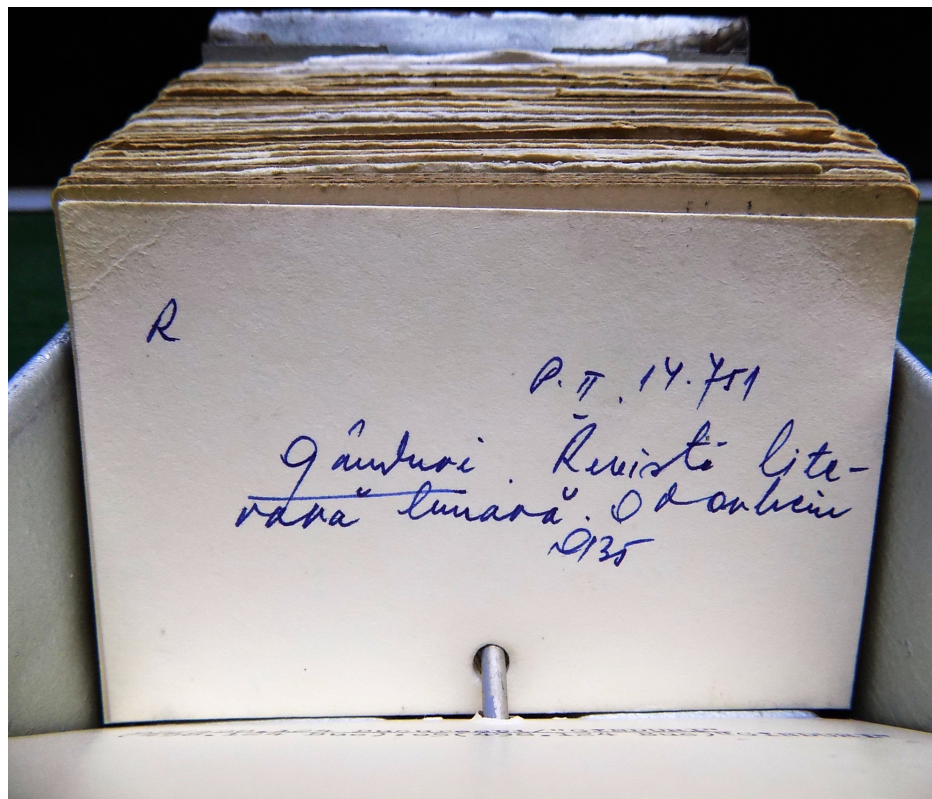 R
P. II. 14.751
Gânduri. Revistă lite-
rară lunară. Odorheiu
935